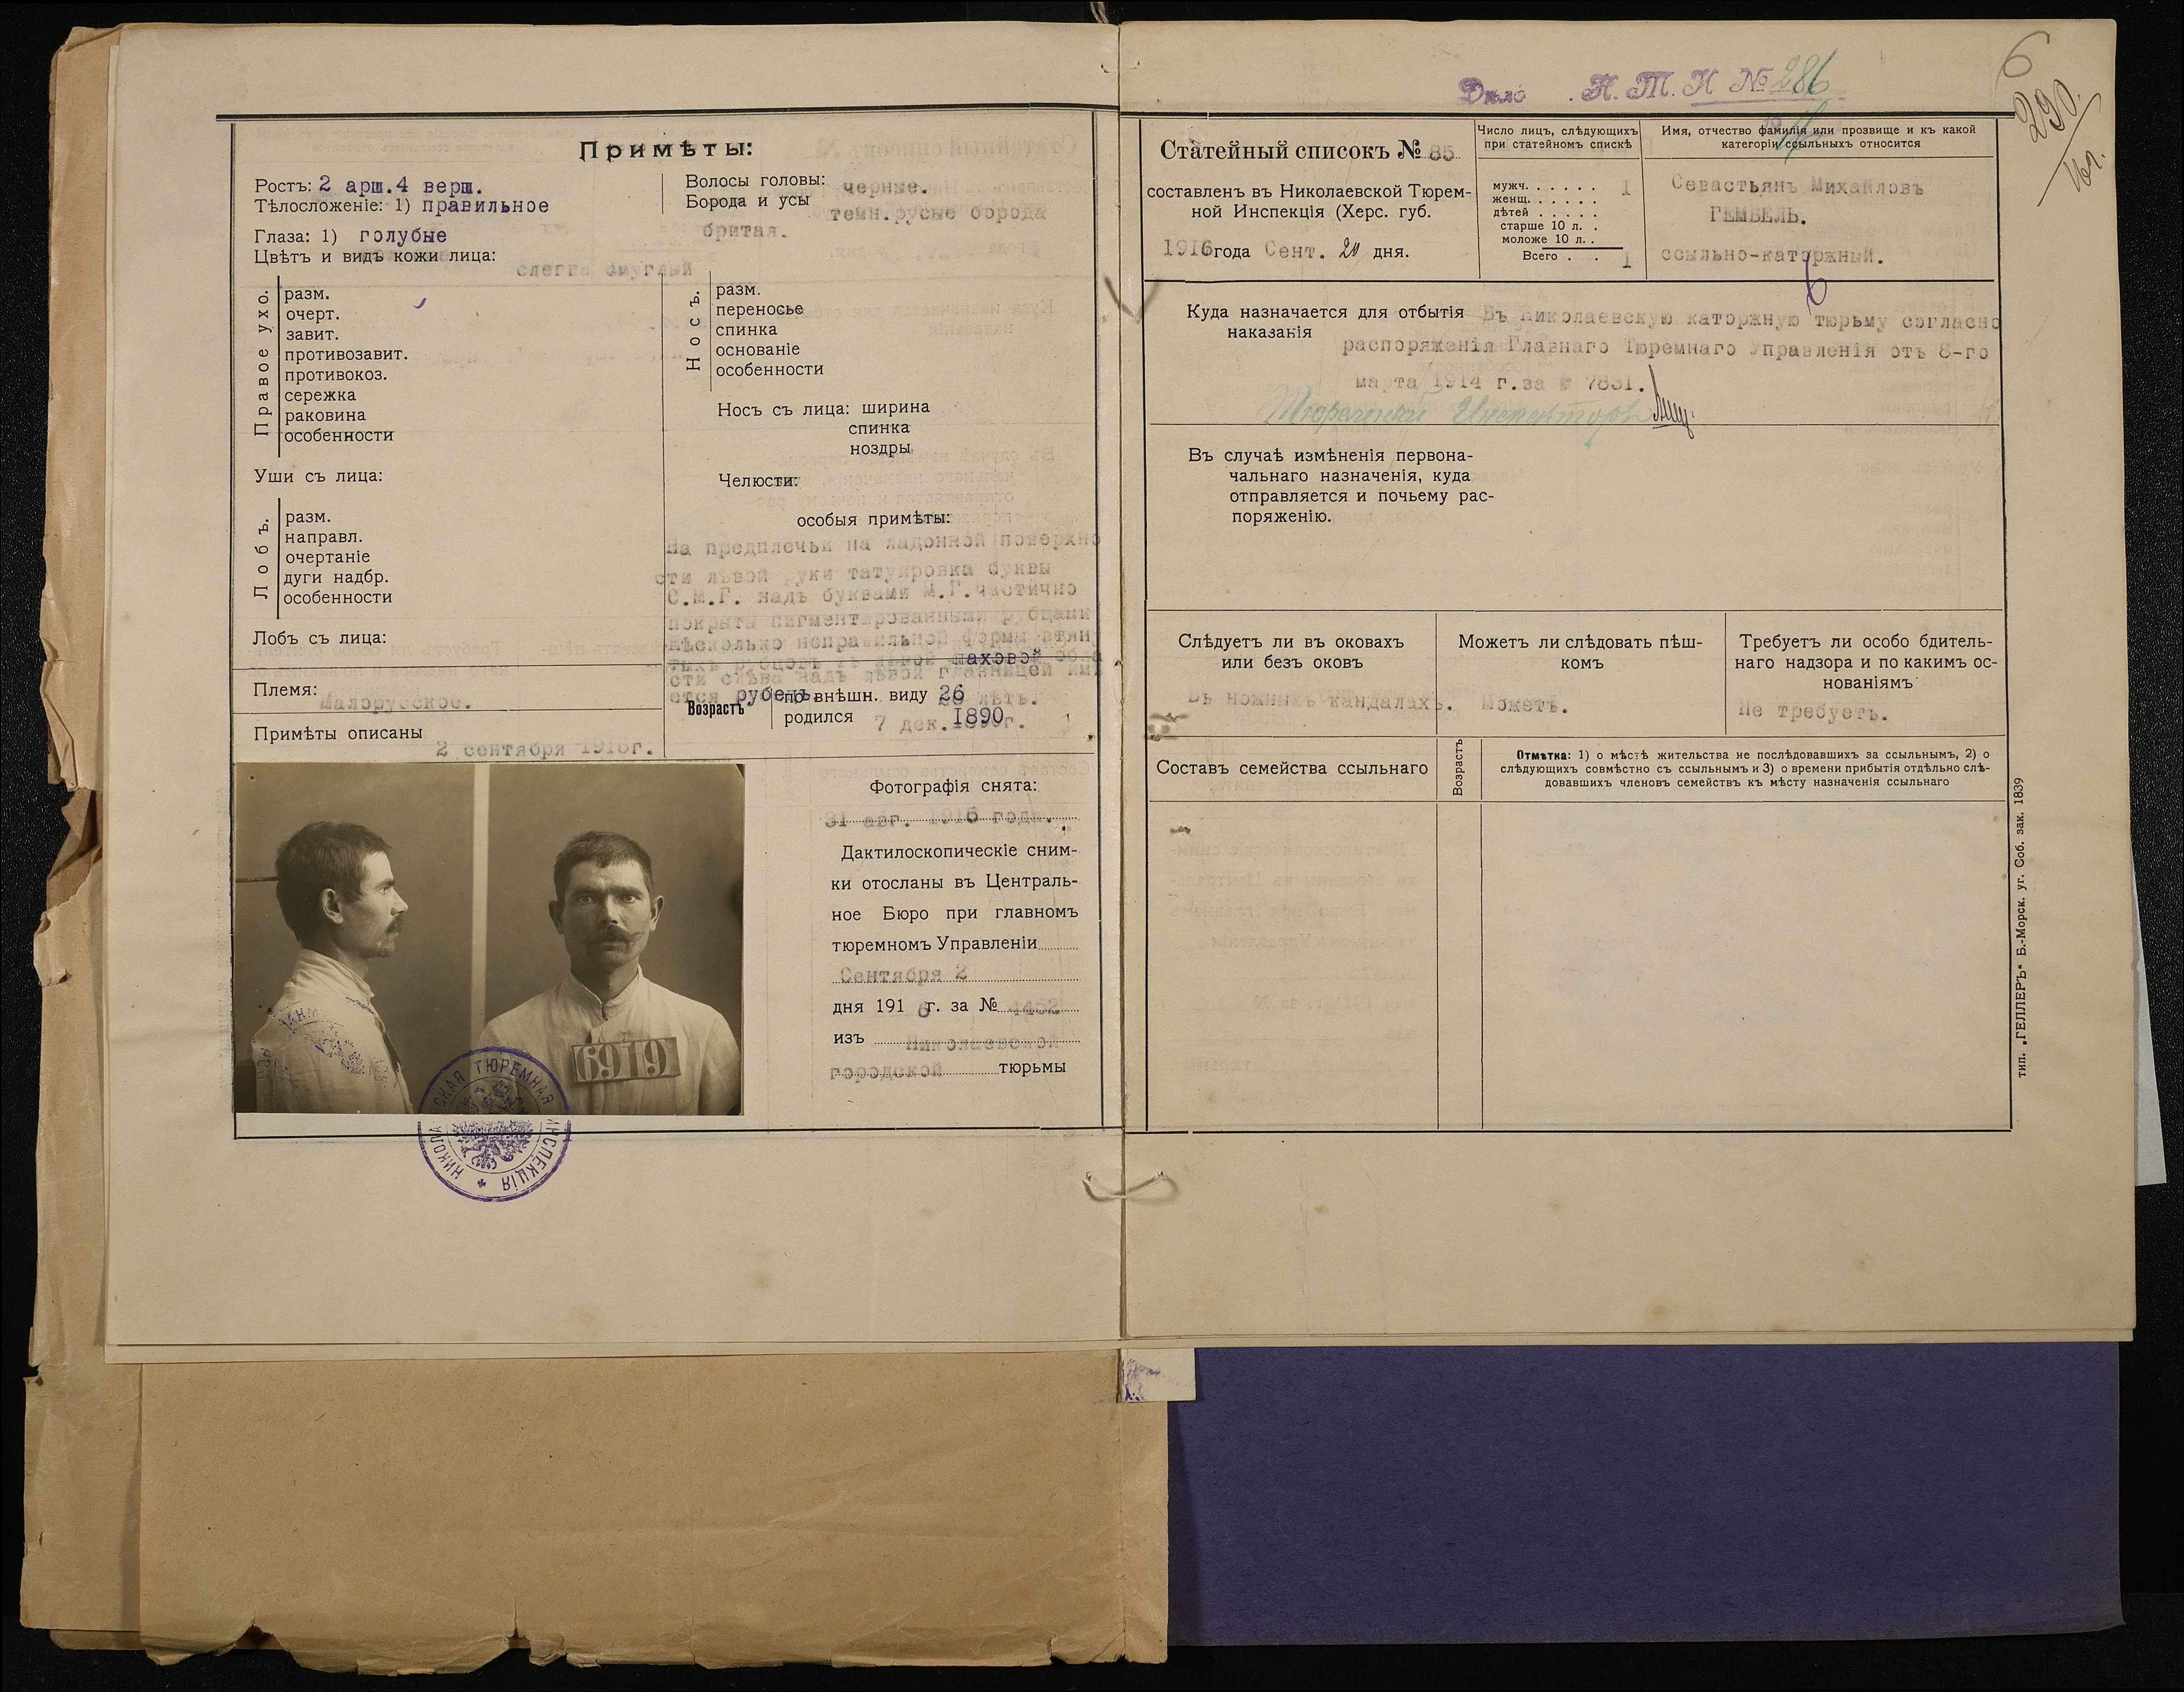 Примѣты:
Ростъ: 2 арш.4 верш.
Тѣлосложеніе: 1) правильное
Глаза: 1) голубые
Цвѣтъ и видъ кожи лица:
слегка смуглый
Волосы головы: черные.
Борода и усы темн.русые борода
бритая.
Правое ухо.
разм.
очерт.
завит.
противозавит.
противокоз.
сережка
раковина
особенности
Носъ.
разм.
переносье
спинка
основаніе
особенности
Носъ съ лица: ширина
спинка
ноздры
Уши съ лица:
Челюсти:
Лобъ.
разм.
направл.
очертаніе
дуги надбр.
особенности
Лобъ съ лица:
особыя примѣты:
На предплечьи на ладонной поверхно
сти лѣвой руки татуировка буквы
С.М.Г. надъ буквами М.Г.частично
покрыты пигментированными рубцами
нѣсколько неправильной формы втян
тыхъ рубцовъ въ паховой обла
сти слѣва надъ лѣвой глазницей имѣ
ется рубецъ.
Племя:
Малорусское.
Примѣты описаны
2 сентября 1916г.
Возрастъ
по внѣшн. виду 26 лѣтъ.
родился 7 дек. 1890 г.
Фотографія снята:
31 авг. 1916 года.
Дактилоскопическіе сним-
ки отосланы въ Централь-
ное Бюро при главномъ
тюремномъ Управленіи
Сентября 2
дня 191 6 г. за № 4452
изъ Николаевской
городской тюрьмы
6919
НИКОЛАЕВСКАЯ ТЮРЕМНАЯ ИНСПЕКЦІЯ
Дѣло Н. Т. И № 286
6
290
Статейный списокъ № 85
составленъ въ Николаевской Тюрем-
ной Инспекція (Херс. губ.
1916 года Сент. 20 дня.
Число лицъ, слѣдующихъ
при статейномъ спискѣ
мужч. . . . . . . I
женщ. . . . . . .
дѣтей . . . . .
старше 10 л. . .
моложе 10 л. . .
Всего . . . I
Имя, отчество фамилія или прозвище и къ какой
категоріи ссыльныхъ относится
Севастьянъ Михайловъ
ГЕМБЕЛЬ.
ссыльно-каторжный.
Куда назначается для отбытія
наказанія
Въ Николаевскую каторжную тюрьму согласно
распоряженія Главнаго Тюремнаго Управленія отъ 8-го
марта 1914 г.за № 7831.
Тюремный Инспекторъ
Въ случаѣ измѣненія первона-
чальнаго назначенія, куда
отправляется и почьему рас-
поряженію.
Слѣдуетъ ли въ оковахъ
или безъ оковъ
Въ ножныхъ кандалахъ.
Можетъ ли слѣдовать пѣш-
комъ
Можетъ.
Требуетъ ли особо бдитель-
наго надзора и по какимъ ос-
нованіямъ
Не требуетъ.
Составъ семейства ссыльнаго
Возрастъ
Отмѣтка: 1) о мѣстѣ жительства не послѣдовавшихъ за ссыльнымъ, 2) о
слѣдующихъ совмѣстно съ ссыльнымъ и 3) о времени прибытія отдѣльно слѣ-
довавшихъ членовъ семействъ къ мѣсту назначенія ссыльнаго
тип. „ГЕЛЛЕРЪ“ Б.-Морск. уг. Соб. зак. 1839